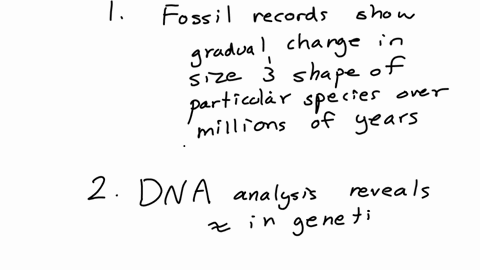 1. Fossil records show
gradual change in
size & shape of
particular species over
millions of years
2. DNA analysis reveals
≈ in geneti